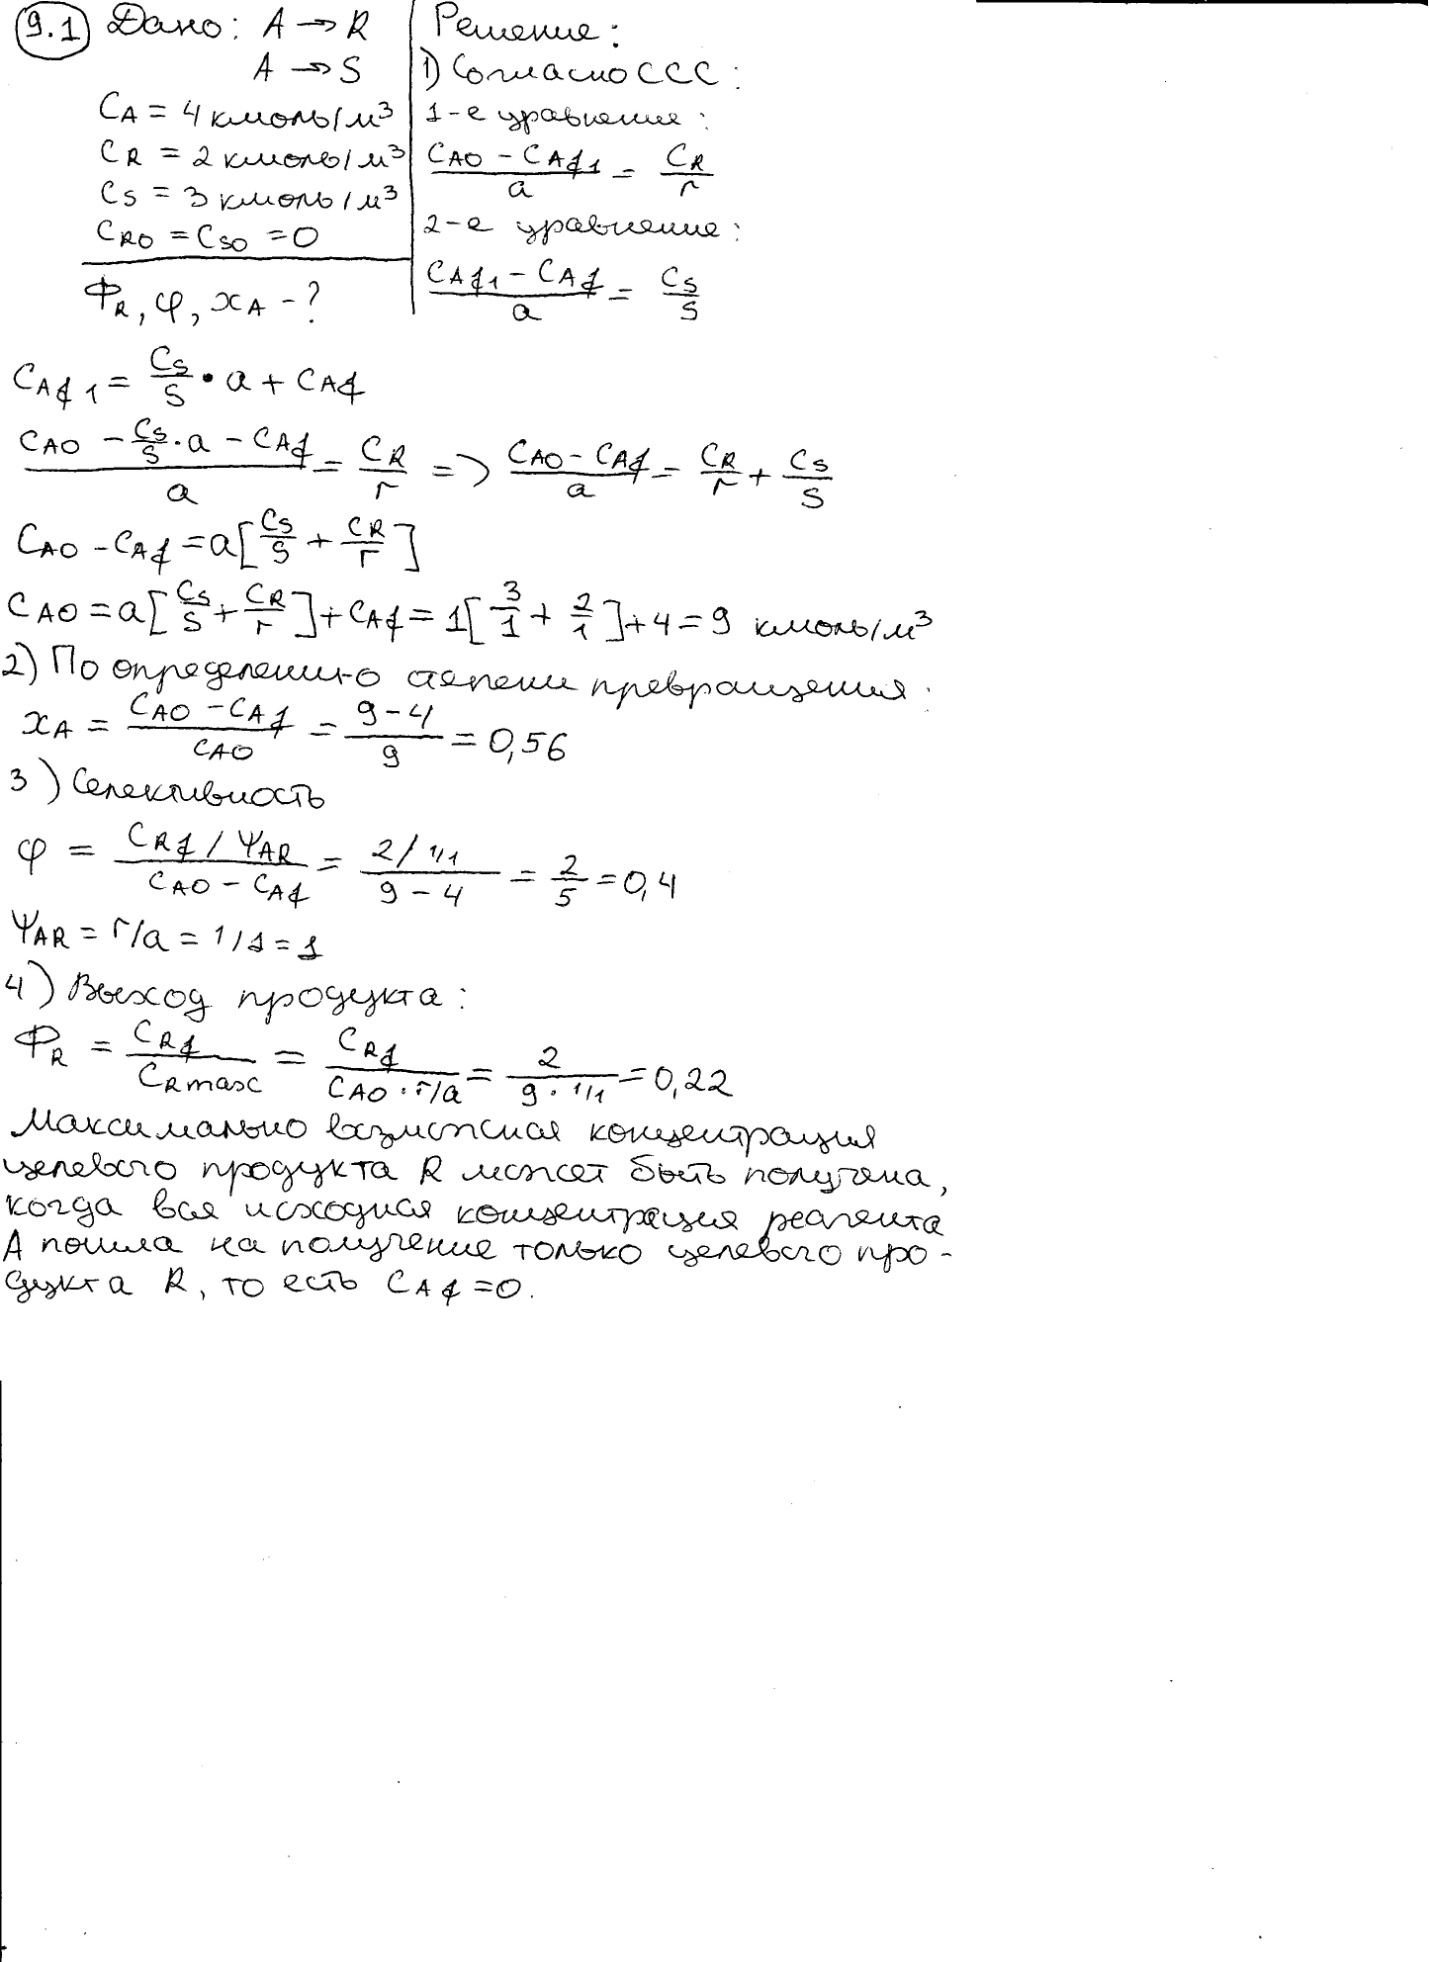 9.1 Дано: A → R
A → S
CA = 4 кмоль/м³
CR = 2 кмоль/м³
CS = 3 кмоль/м³
CR0 = CS0 = 0
ΦR, φ, xA - ?
Решение:
1) Согласно ССС:
1-е уравнение:
(CA0 - CAf1)/a = CR/r
2-е уравнение:
(CAf1 - CAf)/a = CS/S
CAf1 = CS/S · a + CAf
(CA0 - CS/S · a - CAf)/a = CR/r => (CA0 - CAf)/a = CR/r + CS/S
CA0 - CAf = a[CS/S + CR/r]
CA0 = a[CS/S + CR/r] + CAf = 1[3/1 + 2/1] + 4 = 9 кмоль/м³
2) По определению степени превращения:
xA = (CA0 - CAf)/CA0 = (9 - 4)/9 = 0,56
3) Селективность
φ = (CRf / ΨAR)/(CA0 - CAf) = (2 / 1/1)/(9 - 4) = 2/5 = 0,4
ΨAR = r/a = 1/1 = 1
4) Выход продукта:
ΦR = CRf/CRmax = CRf/(CA0 · r/a) = 2/(9 · 1/1) = 0,22
Максимально возможная концентрация
целевого продукта R может быть получена,
когда вся исходная концентрация реагента
А пошла на получение только целевого про-
дукта R, то есть CAf = 0.